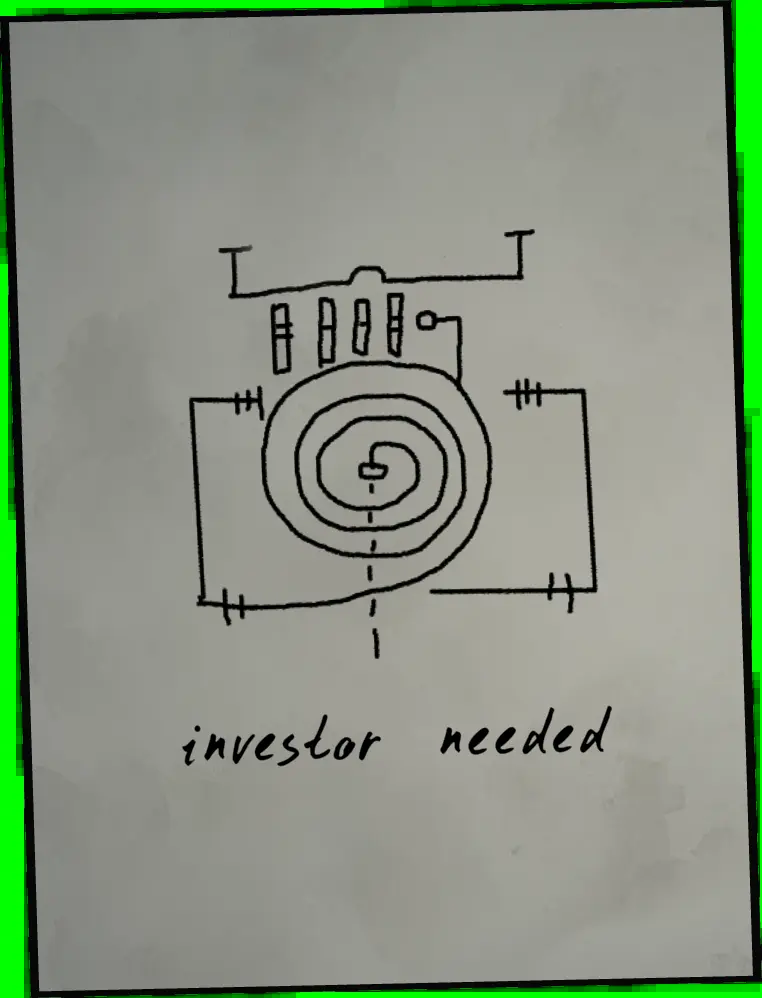 investor needed